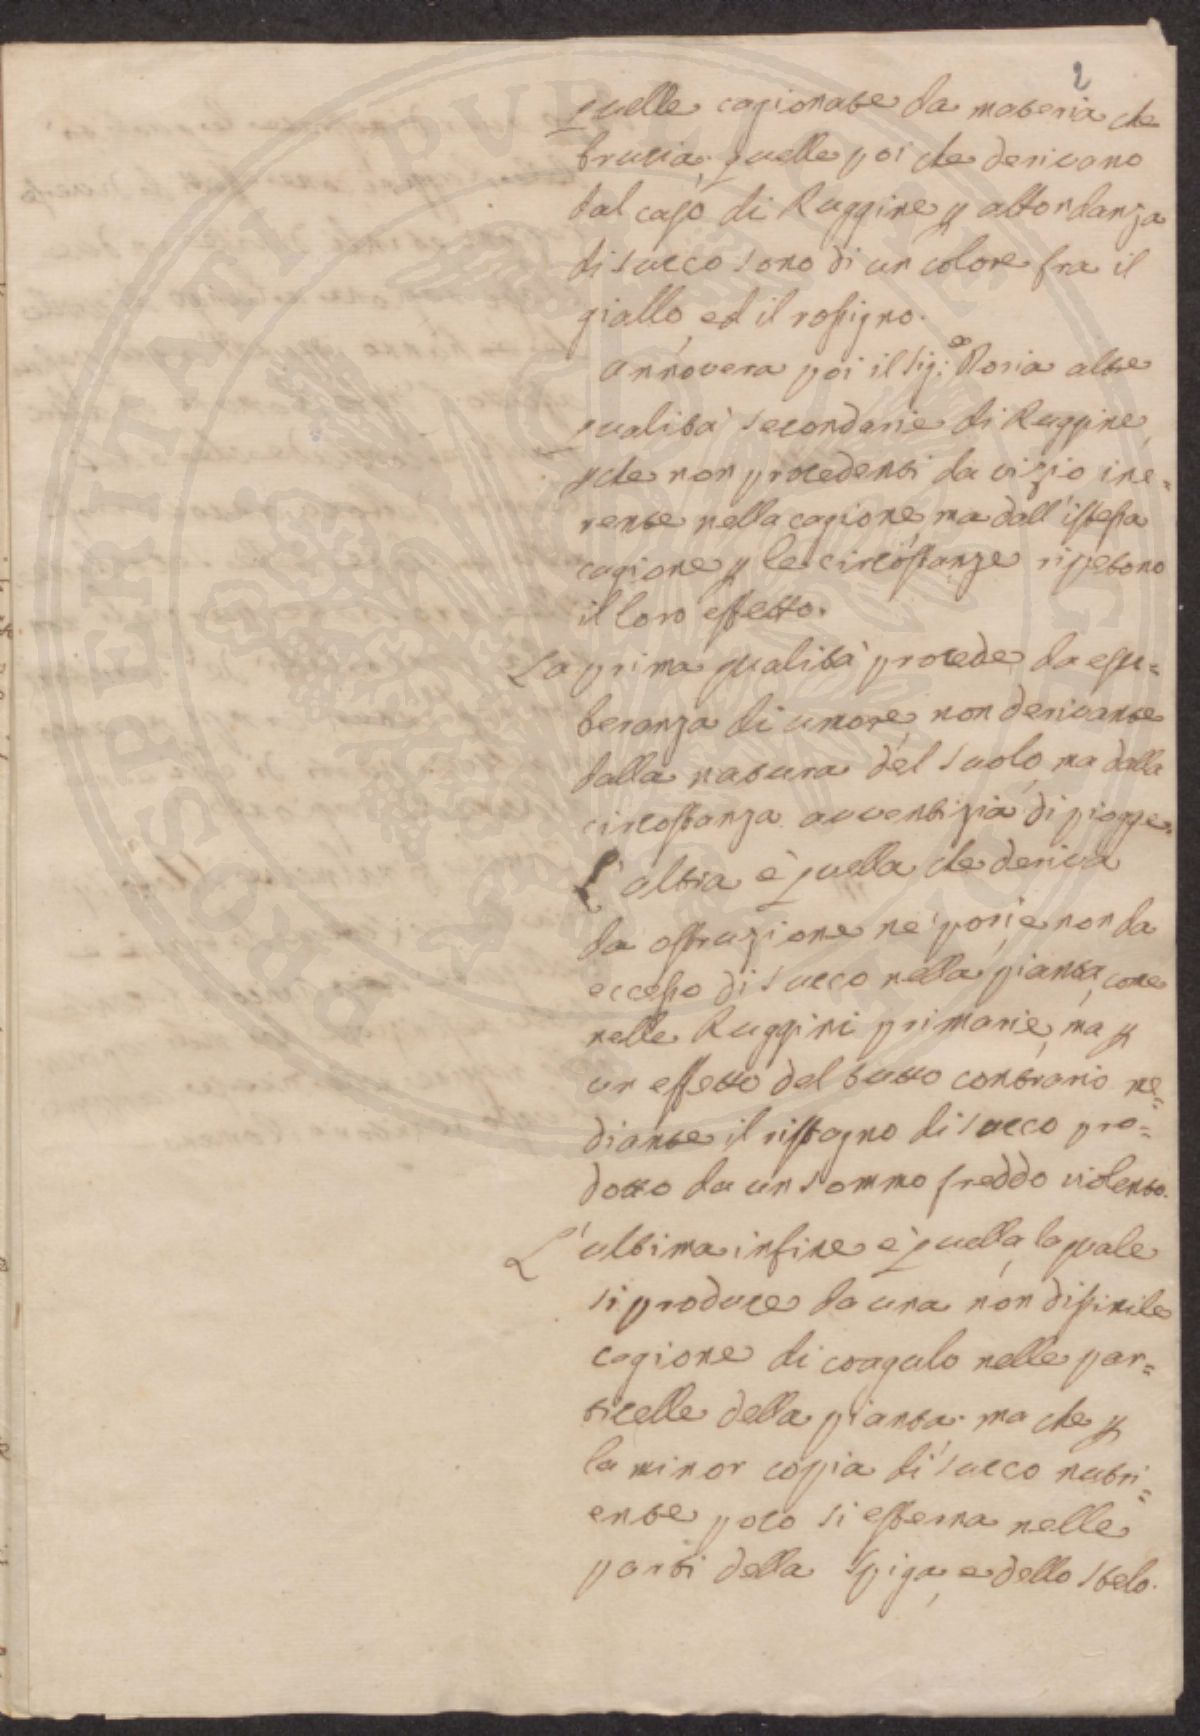 2
quelle cagionate da materia che
brucia; quelle poi che derivano
dal caso di Ruggine p abbondanza
di succo sono di un colore fra il
giallo, ed il rossigno.
Annovera poi il Sig:e Doria altre
qualità secondarie di Ruggine,
che non procedenti da vizio ine=
rente nella cagione, ma dall'istessa
cagione p le circostanze ripetono
il loro effetto.
La prima qualità procede da esu=
beranza di umore, non derivante
dalla natura del suolo, ma dalla
circostanza avventizia di piogge.
L'altra è quella che deriva
da ostruzione ne' pori e non da
eccesso di succo nella pianta, come
nelle Ruggini primarie, ma p
un effetto del tutto contrario me=
diante il ristagno di succo pro=
dotto da un sommo freddo violento.
L'ultima infine è quella, la quale
si produce da una non dissimile
cagione di coagulo nelle par=
ticelle della pianta: ma che p
la minor copia di succo nutri=
ente poco si esterna nelle
parti della spiga, e dello stelo.
PROSPERITATI PVBLICAE